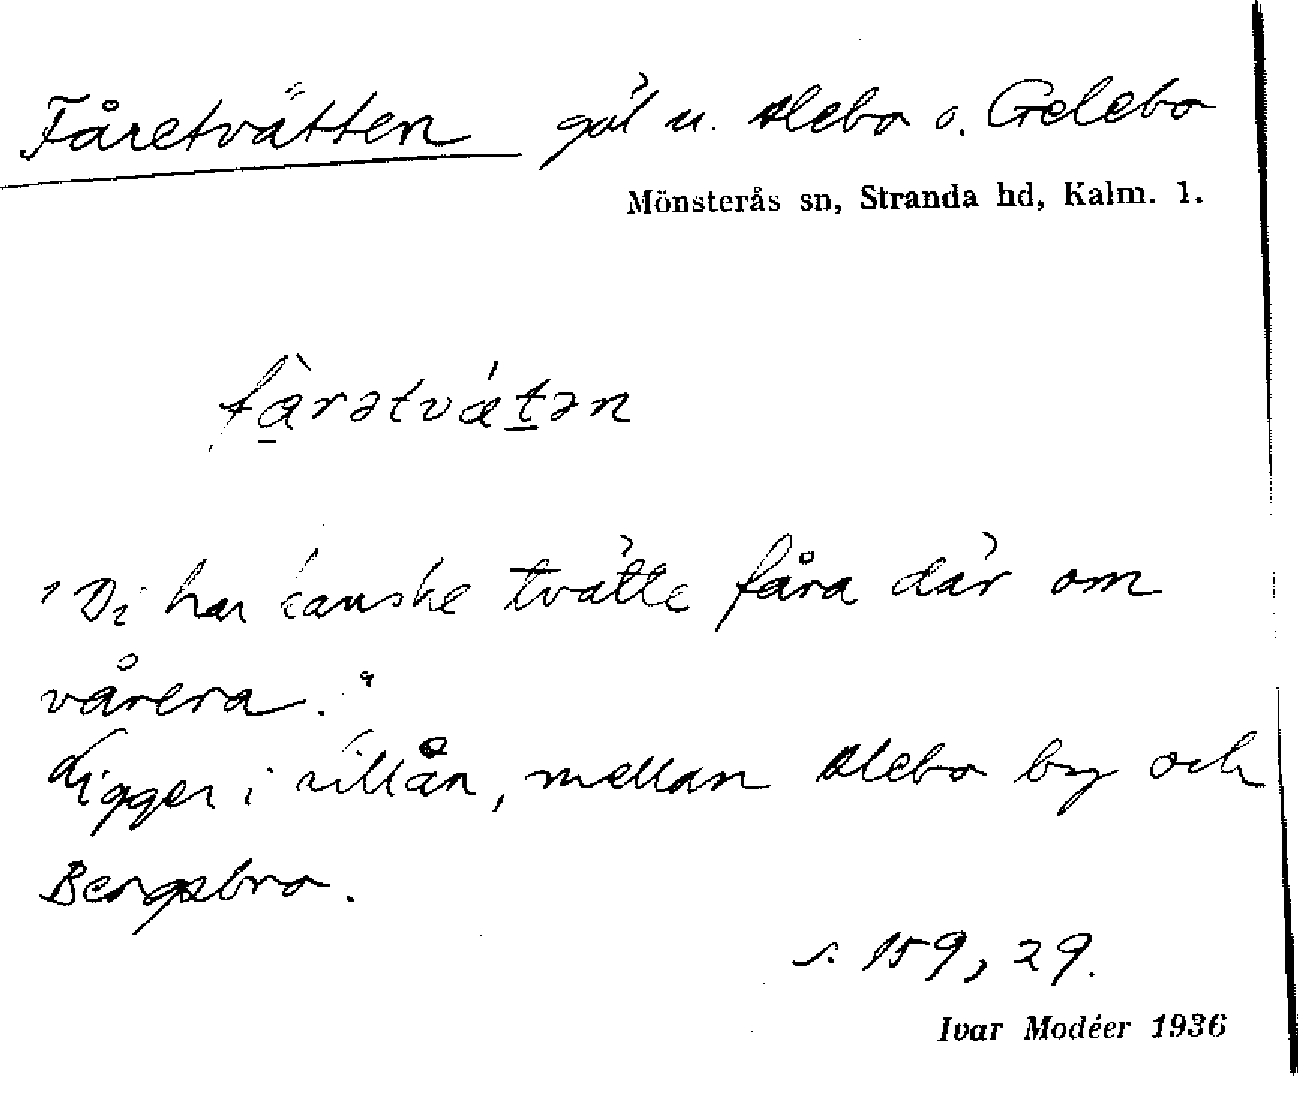 Fåretvätten göl u. Alebo o. Gelebo
Mönsterås sn, Stranda hd, Kalm. 1.
fàrətvǽtən
"Di har kanske tvätte fåra där om
vårera."
Ligger i lillån, mellan Alebo by och
Bergsbro.
s. 159, 29.
Ivar Modéer 1936